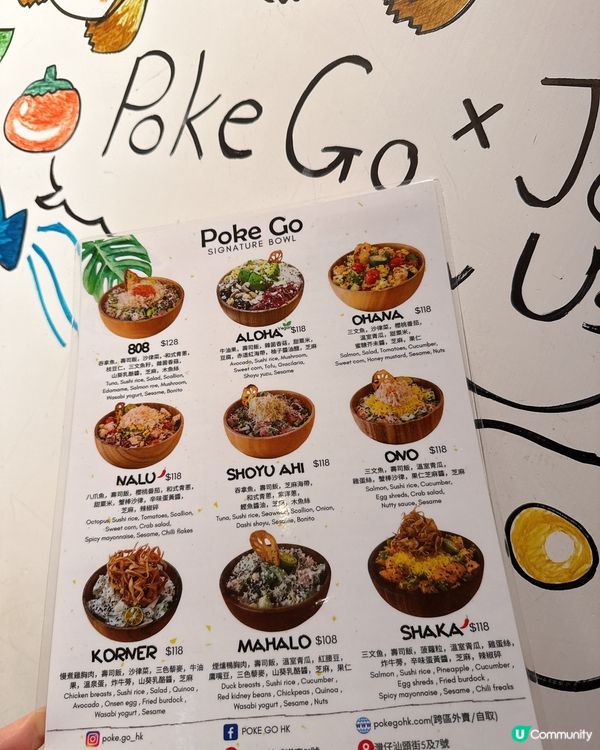 Poke Go × J
U
Poke Go
SIGNATURE BOWL
808 $128
吞拿魚, 壽司飯, 沙律菜, 和式青蔥,
枝豆仁, 三文魚籽, 雜菌香菇,
山葵乳酪醬, 芝麻, 木魚絲
Tuna, Sushi rice, Salad, Scallion,
Edamame, Salmon roe, Mushroom,
Wasabi yogurt, Sesame, Bonito
ALOHA $118
牛油果, 壽司飯, 雜菌香菇, 甜粟米,
豆腐, 赤道紅海帶, 柚子醬油醋, 芝麻
Avocado, Sushi rice, Mushroom,
Sweet corn, Tofu, Gracilaria,
Shoyu yuzu, Sesame
OHANA $118
三文魚, 沙律菜, 櫻桃番茄,
溫室青瓜, 甜粟米,
蜜糖芥末醬, 芝麻, 果仁
Salmon, Salad, Tomatoes, Cucumber,
Sweet corn, Honey mustard, Sesame, Nuts
NALU $118
八爪魚, 壽司飯, 櫻桃番茄, 和式青蔥,
甜粟米, 蟹棒沙律, 辛味蛋黃醬,
芝麻, 辣椒碎
Octopus, Sushi rice, Tomatoes, Scallion,
Sweet corn, Crab salad,
Spicy mayonnaise, Sesame, Chilli flakes
SHOYU AHI $118
吞拿魚, 壽司飯, 芝麻海帶,
和式青蔥, 紫洋蔥,
鰹魚醬油, 芝麻, 木魚絲
Tuna, Sushi rice, Seaweed, Scallion, Onion,
Dashi shoyu, Sesame, Bonito
ONO $118
三文魚, 壽司飯, 溫室青瓜,
雞蛋絲, 蟹棒沙律, 果仁芝麻醬, 芝麻
Salmon, Sushi rice, Cucumber,
Egg shreds, Crab salad,
Nutty sauce, Sesame
KORNER $118
慢煮雞胸肉, 壽司飯, 沙律菜, 三色藜麥, 牛油
果, 溫泉蛋, 炸牛蒡, 山葵乳酪醬, 芝麻
Chicken breasts, Sushi rice, Salad, Quinoa,
Avocado, Onsen egg, Fried burdock,
Wasabi yogurt, Sesame
MAHALO $108
煙燻鴨胸肉, 壽司飯, 溫室青瓜, 紅腰豆,
鷹嘴豆, 三色藜麥, 山葵乳酪醬, 芝麻, 果仁
Duck breasts, Sushi rice, Cucumber,
Red kidney beans, Chickpeas, Quinoa,
Wasabi yogurt, Sesame, Nuts
SHAKA $118
三文魚, 壽司飯, 菠蘿粒, 溫室青瓜, 雞蛋絲,
炸牛蒡, 辛味蛋黃醬, 芝麻, 辣椒碎
Salmon, Sushi rice, Pineapple, Cucumber,
Egg shreds, Fried burdock,
Spicy mayonnaise, Sesame, Chili freaks
poke_go_hk
POKE.GO.HK
www.pokegohk.com(跨區外賣/自取)
灣仔汕頭街5及7號
U Community